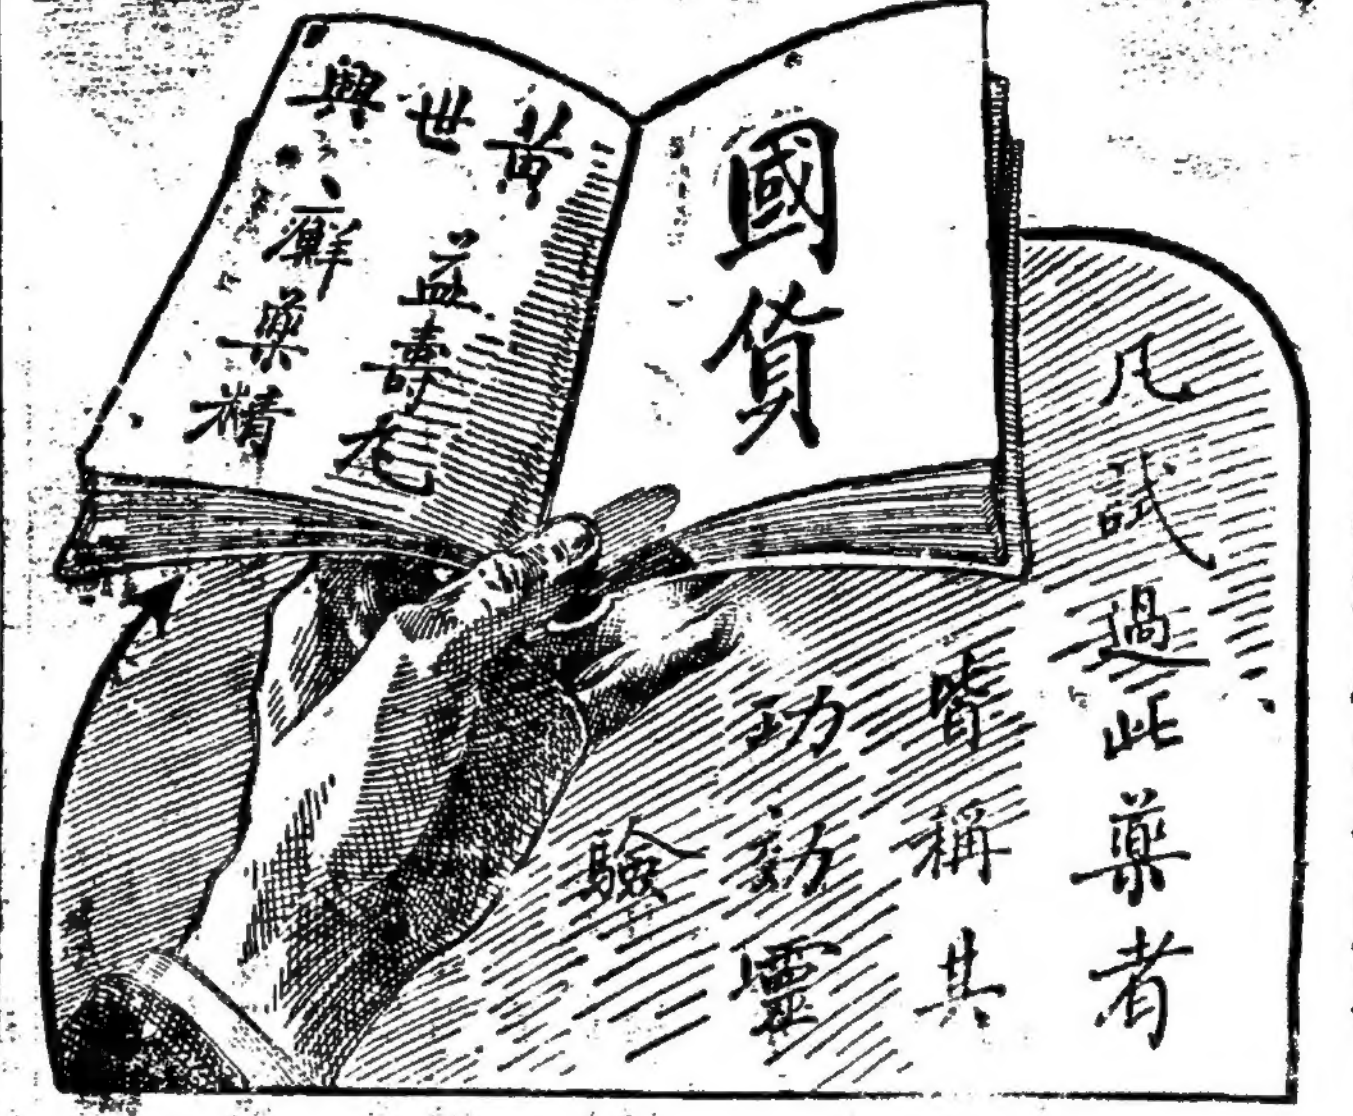 國貨
黃世興
益壽丸
癬藥精
凡試過此藥者
皆稱其
功効靈
驗